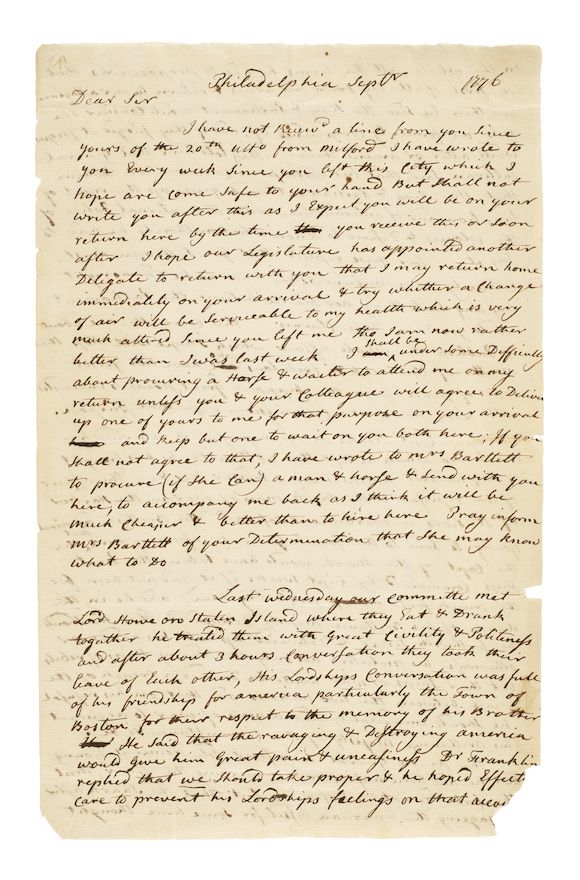 Philadelphia Septr 1776
Dear Sir
I have not Receivd a line from you Since
yours of the 20th ulto from milford I have wrote to
you Every week Since you left this City which I
hope are come safe to your hand But Shall not
write you after this as I Expect you will be on your
return here by the time you receive this or soon
after I hope our Legislature has appointed another
Deligate to return with you that I may return home
immediately on your arrival & try whether a Change
of air will be Serviceable to my health which is very
much altred Since you left me tho I am now rather
better than I was last week I shall be under some Difficulty
about procuring a Horse & waiter to attend me on my
return unless you & your Colleague will agree to Deliver
up one of yours to me for that purpose on your arrival
and keep but one to wait on you both here; If you
Shall not agree to that, I have wrote to mrs Bartlett
to procure (if She Can) a man & horse & Send with you
here, to accompany me back as I think it will be
much Cheaper & better than to hire here Pray inform
mrs Bartlett of your Determination that She may know
what to Do
Last wednesday our Committe met
Lord Howe on Staten Island where they Eat & Drank
together he treated them with Great Civility & Politeness
and after about 3 hours Conversation they took their
leave of Each other, His Lordships Conversation was full
of his friendship for america particularly the Town of
Boston for their respect to the memory of his Brother
He Said that the ravaging & Distroying america
would Give him Great pain & uneasiness Dr Franklin
replied that we Should take proper & he hoped Effect
Care to prevent his Lordships feelings on that accou